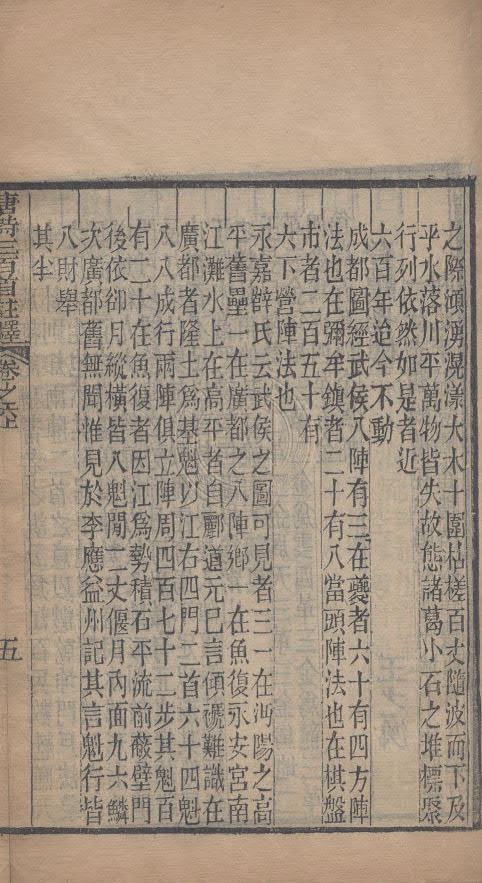 之際澒湧滉漾大木十圍枯槎百丈隨波而下及
乎水落川平萬物皆失故態諸葛小石之堆標聚
行列依然如是者近
六百年迨今不動
成都圖經武侯八陣有三在夔者六十有四方陣
法也在彌牟鎮者二十有八當頭陣法也在棋盤
市者二百五十有
六下營陣法也
永嘉薛氏云武侯之圖可見者三一在沔陽之高
平舊壘一在廣都之八陣鄉一在魚復永安宮南
江灘水上在高平者自酈道元已言傾褫難識在
廣都者隆土爲基魁以江右四門二首六十四魁
八八成行兩陣俱立陣周四百七十二步其魁百
有二十在魚復者因江爲勢積石平流前蔽壁門
後依卻月縱橫皆八魁間二丈偃月內面九六鱗
次廣都舊無聞惟見於李膺益州記其言魁行皆
八財舉
其半
唐詩三百首註釋
卷之六上
五